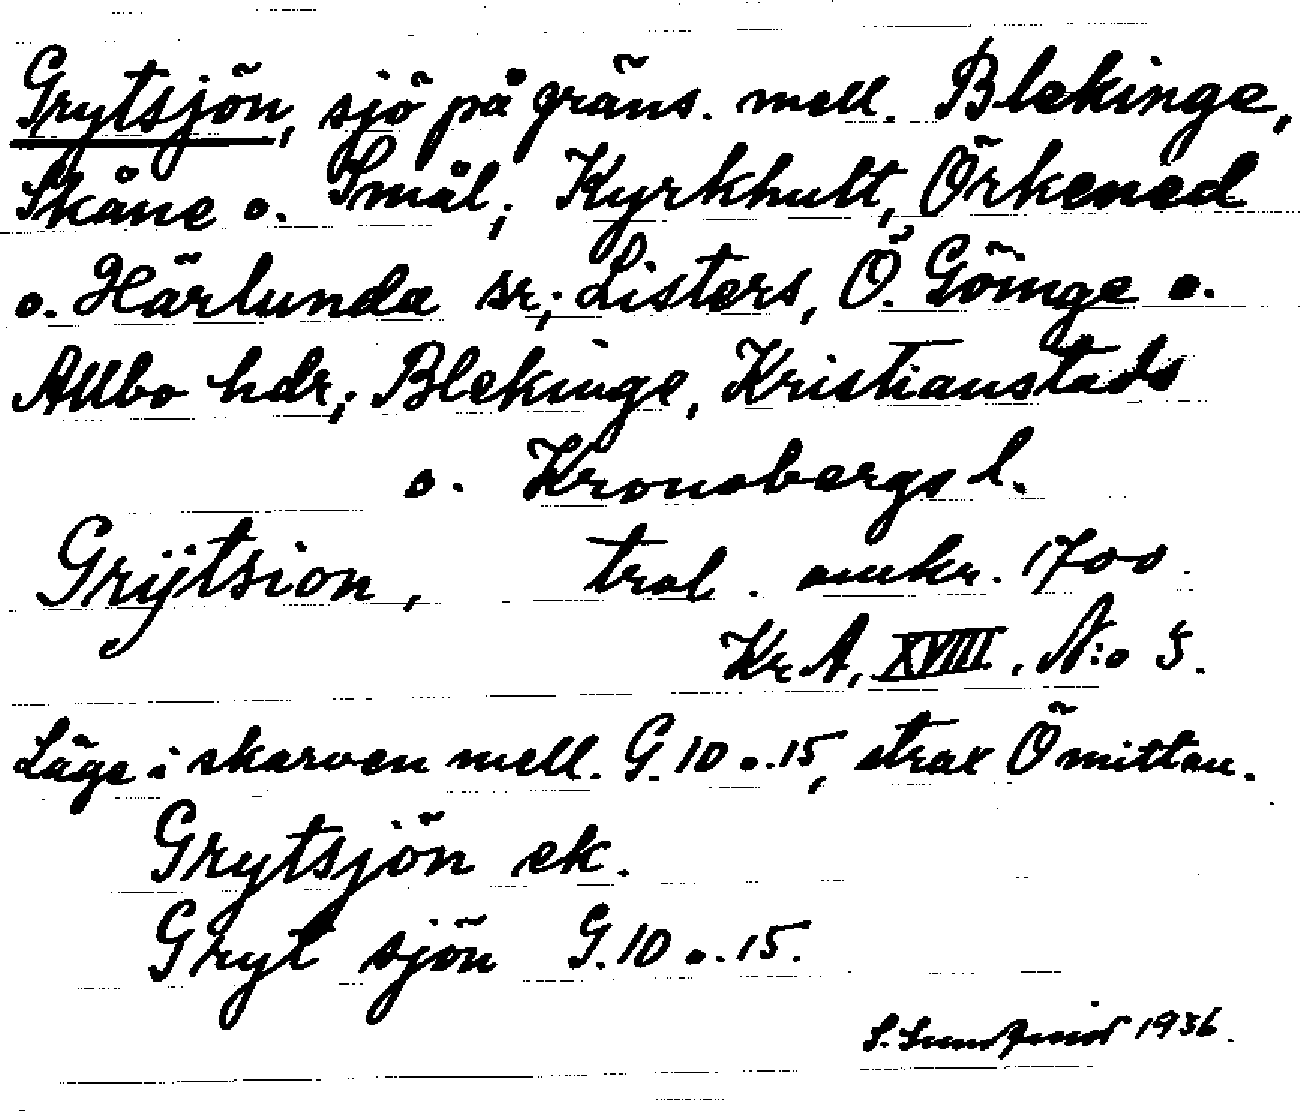 Grytsjön, sjö på gräns. mell. Blekinge,
Skåne o. Smål; Kyrkhult, Örkened
o. Härlunda sr; Listers, Ö. Göinge o.
Allbo hdr; Blekinge, Kristianstads
o. Kronobergs l.
Grÿtsion, trol. omkr. 1700.
Kr.A, XVIII. N:o 5.
Läge i skarven mell. G. 10 o. 15, strax Ö mitten.
Grytsjön ek.
Gryt sjön G. 10 o. 15.
S. 1936.